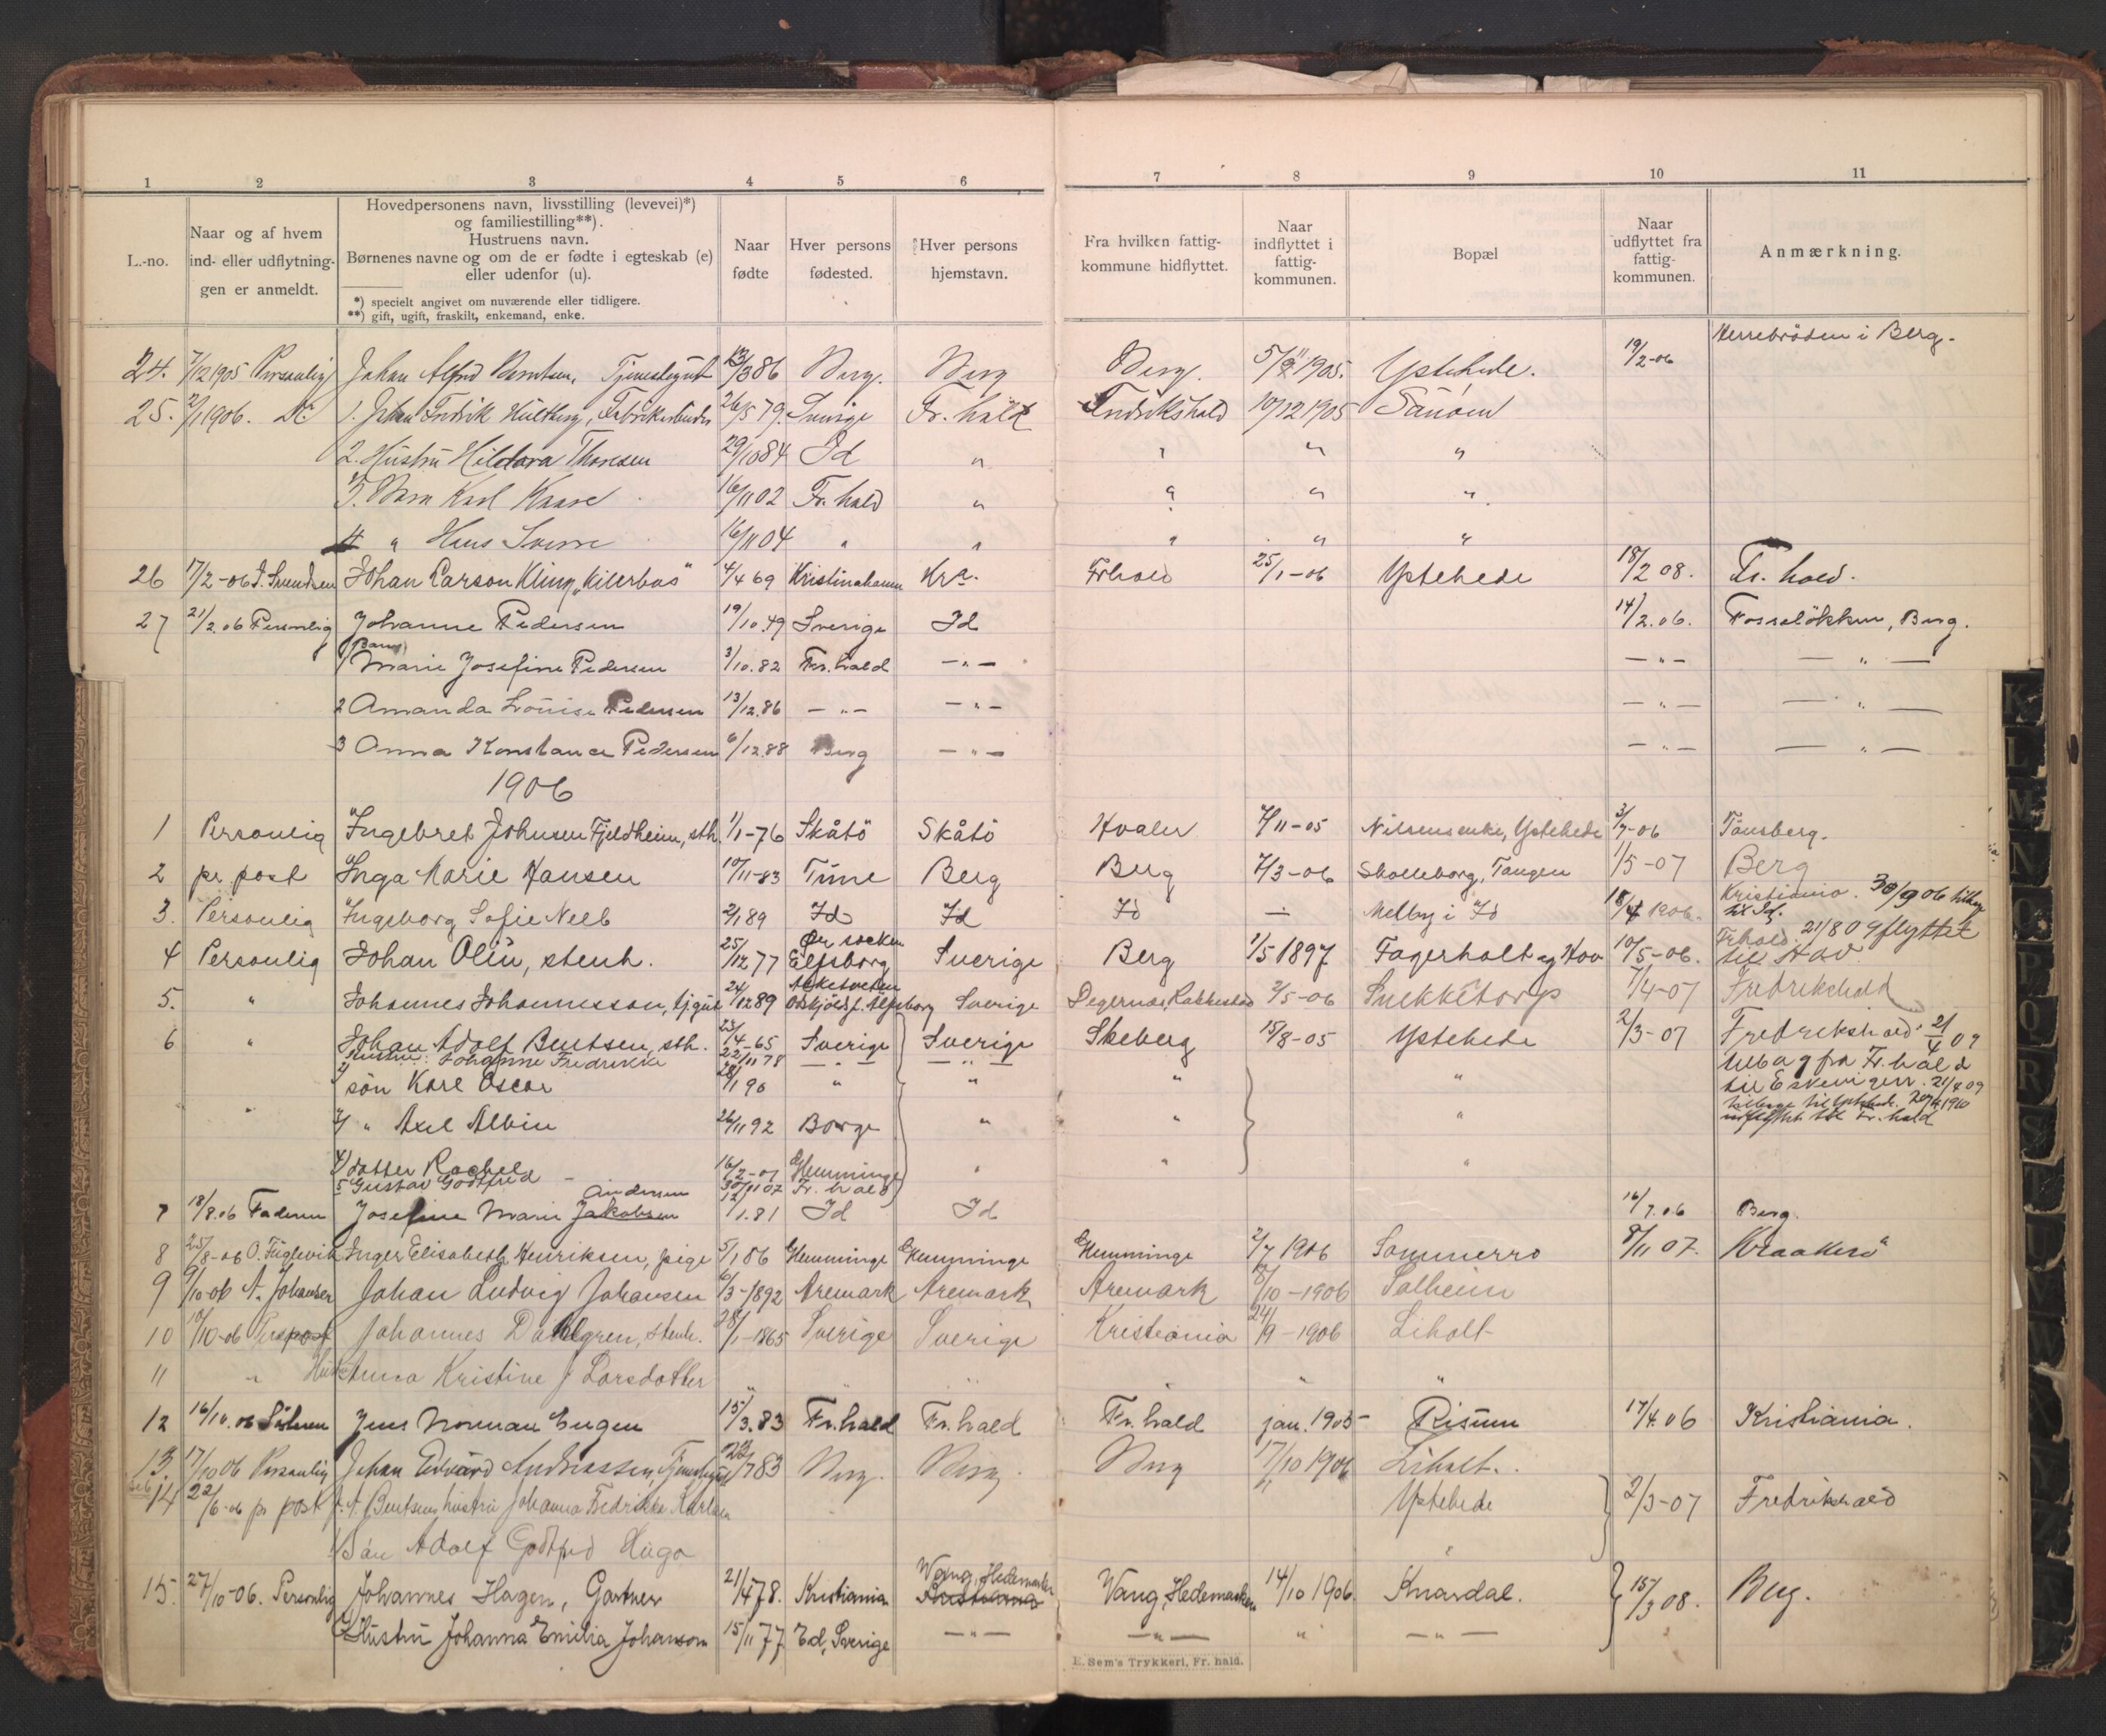 1 2 3 4 5 6 7 8 9 10 11
L.-no.
Naar og af hvem
ind- eller udflytnin-
gen er anmeldt.
Hovedpersonens navn, livsstilling (levevei)*)
og familiestilling**).
Hustruens navn.
Børnenes navne og om de er fødte i egteskab (e)
eller udenfor (u).
*) specielt angivet om nuværende eller tidligere.
**) gift, ugift, fraskilt, enkemand, enke.
Naar
fødte
Hver persons
fødested.
Hver persons
hjemstavn.
Fra hvilken fattig-
kommune hidflyttet.
Naar
indflyttet i
fattig-
kommunen.
Bopæl
Naar
udflyttet fra
fattig-
kommunen.
Anmærkning.
Herrebröden i Berg.
24. 7/12 1905 Personlig Johan Alfred Berntsen, Tjenestegut 86 Berg. Berg Berg. 1905. Ystehede. 19/2-06
25. 2/1 1906. Do 1. Johan Fredrik Hultberg, Fabrikarbeider 26/5 79. Sverige Fr. hald Fredrikshald 10/12 1905
2. Hustru Hildora Thoresen 29/10 84 Id " " " "
3. Barn Karl Kaare 16/11 02 Fr. hald " " " "
4 " Hans Sverre 16/11 04 " " " " "
26 17/2-06 J. Svendsen Johan Carson Kling "Kilerbas" 4/4 69 Kristinahamn Kra. Frhald 25/1-06 Ystehede 18/2 08. Fr. hald.
27 21/2.06 Personlig Johanne Pedersen 19/10.49 Sverige Id 14/2.06. Fosseløkken, Berg.
(Barn)
1 Marie Josefine Pedersen 3/10.82 Fr. hald — " — — " — — " —
2 Amanda Louise Pedersen 13/12.86 — " — — " — — " — — " —
3 Anna Konstance Pedersen 6/12.88 Berg — " — — " — — " —
1906
1 Personlig Ingebret Johnsen Fjeldheim, sth. 1/1-76 Skåtö Skåtö Hvaler 7/11-05 Nilsens enke, Ystehede 3/7-06 Tönsberg.
2 pr. post Inga Marie Hansen 10/11-83 Tune Berg Berg 7/3-06 Skolleborg, Tangen 1/5-07 Berg
3. Personlig Ingeborg Sofie Neeb 2/1 89 Id Id Id — Melby i Id 18/4 1906. Kristiania. 30/9 06 tilbage
til Id.
4 Personlig Johan Olin, stenh. 25/12 77 Ör socken Elfsborg Sverige Berg 1/5 1897 Fagerholt og Hov 10/5-06. Frhald. 21/8 09 flyttet
til Hov
5. " Johannes Johannesson, tj.gut 24/12 89 Sverige Degernæs, Rakkestad 2/5-06 Snekketorp 7/4-07 Fredrikshald
6 " Johan Adolf Bentsen, sth. 23/4-65 Sverige Sverige Skeberg 15/8-05 Ystehede 2/3-07 Fredrikshald. 2/4 09
Hustru: Johanne Fredrikke 22/11 78 — " — — " — tilbage fra Fr. hald
1/ sön Karl Oscar 28/1 90 " " " " til Eskevigen. 21/4 09
tilbage til Ystehede. 20/4 1910
2/ " Axel Albin 26/11 92 Borge " " " udflyttet til Fr. hald
4/ datter Rachel 16/2-01 Hemminge " " "
5 Gustav Godtfred 30/11 07 Fr. hald
7 18/8.06 Faderen Josefine Marie Jakobsen Andersen 12/1.81 Id Id 16/7.06 Berg.
8 25/8-06 O. Fuglevik Inger Elisabeth Henriksen, pige 5/1 86 Hemminge Hemminge Hemminge 2/7 1906 Sommerro 8/11 07. Kraakerö
9 9/10-06 A. Johansen Johan Ludvig Johansen 6/3-1892 Aremark Aremark Aremark 8/10-1906 Solheim
10 10/10-06 Pr post Johannes Dahlgren, stenh. 28/1-1865 Sverige Sverige Kristiania 24/9-1906 Liholt
11 " Hustru Anna Kristine J Larsdatter " " "
12 16/10.06 Jens Norman Eugen 15/3.83 Fr. hald Fr. hald Fr. hald jan. 1905- Risum 17/4.06 Kristiania.
13. 17/10 06 Personlig Johan Edvard Andreassen, Tjenestegut 22/7 83 Berg. Berg. Berg 17/10 1906 Liholt.
14 22/6-06 pr post J. A. Bentsens hustru Johanna Fredrikke Karlsen Ystehede 2/3-07 Fredrikshald
1/ Sön Adolf Godtfred Hugo "
15. 27/10-06. Personlig Johannes Hagen, Gartner 21/4 78. Kristiania Kristiania Vang, Hedemarken Vang, Hedemarken 14/10 1906. Knardal. 15/3 08. Berg.
Hustru Johanna Emilia Johanson 15/11 77 Ed, Sverige — " — — " — " — " —
E. Sem's Trykkeri, Fr. hald.
K L M N O P Q R S T U